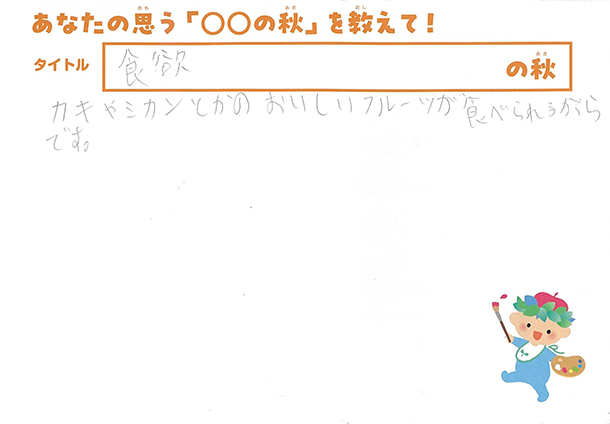 あなたの思う「〇〇の秋」を教えて!
タイトル 食欲 の秋
カキやミカンとかのおいしいフルーツが食べられるから
です。